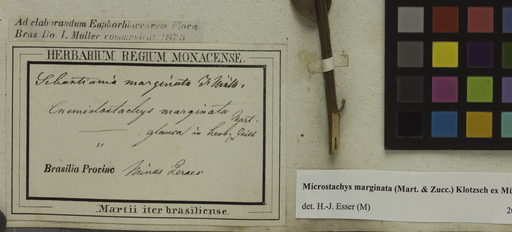 Ad elaborandum Euphorbiacearum Flora
Bras Do. I. Müller communicat. 1873
HERBARIUM REGIUM MONACENSE.
Sebastiania marginata J. Müll.
Cnemidostachys marginata Mart.
— glauca in herb.
"
Brasilia Provinc Minas Geraes
Martii iter brasiliense.
Microstachys marginata (Mart. & Zucc.) Klotzsch ex Mü
det. H.-J. Esser (M)
20